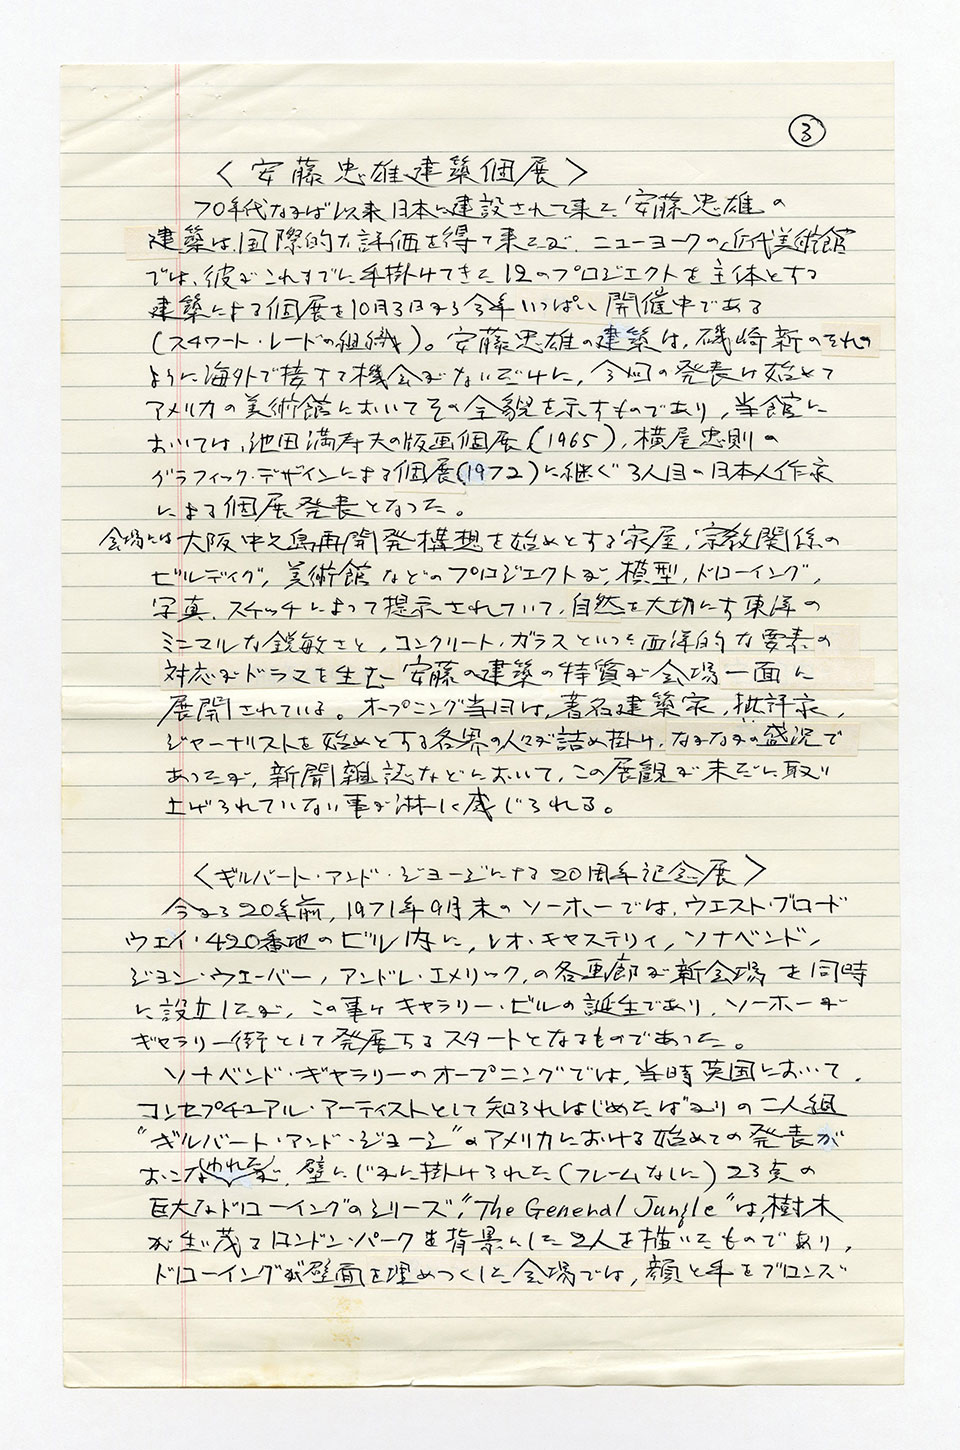 ③
〈安藤忠雄建築個展〉
70年代なかば以来日本に建設されて来た、安藤忠雄の
建築は、国際的な評価を得て来たが、ニューヨークの近代美術館
では、彼がこれまでに手掛けてきた12のプロジェクトを主体とする
建築による個展を10月3日から今年いっぱい開催中である
(スチワート・レードの組織)。安藤忠雄の建築は、磯崎新のそれの
ように海外で接する機会がないだけに、今回の発表は始めて
アメリカの美術館においてその全貌を示すものであり、当館に
おいては、池田満寿夫の版画個展(1965)、横尾忠則の
グラフィック・デザインによる個展(1972)に継ぐ3人目の日本人作家
による個展発表となった。
会場には大阪中之島再開発構想を始めとする家屋、宗教関係の
ビルディグ、美術館などのプロジェクトが、模型、ドローイング、
写真、スケッチによって提示されていて、自然を大切にす東洋の
ミニマルな鋭敏さと、コンクリート、ガラスといった西洋的な要素の
対応がドラマを生む安藤の建築の特質が会場一面に
展開されている。オープニング当日は、著名建築家、批評家、
ジャーナリストを始めとする各界の人々が詰め掛け、なかなかの盛況で
あったが、新聞雑誌などにおいて、この展観が未だに取り
上げられていない事が淋しく感じられる。
〈ギルバート・アンド・ジョージによる20周年記念展〉
今から20年前、1971年9月末のソーホーでは、ウエスト・ブロード
ウェイ・420番地のビル内に、レオ・キャステリィ、ソナベンド、
ジョン・ウェーバー、アンドレ・エメリック、の各画廊が新会場を同時
に設立したが、この事はギャラリー・ビルの誕生であり、ソーホーが
ギャラリー街として発展するスタートとなるものであった。
ソナベンド・ギャラリーのオープニングでは、当時英国において、
コンセプチュアル・アーティストとして知られはじめたばかりの二人組
"ギルバート・アンド・ジョージ"のアメリカにおける始めての発表が
おこなわれたが、壁にじかに掛けられた(フレームなしに)23点の
巨大なドローイングのシリーズ、"The General Jungle"は、樹木
が生い茂るロンドン・パークを背景にした2人を描いたものであり、
ドローイングが壁面を埋めつくした会場では、顔と手をブロンズ